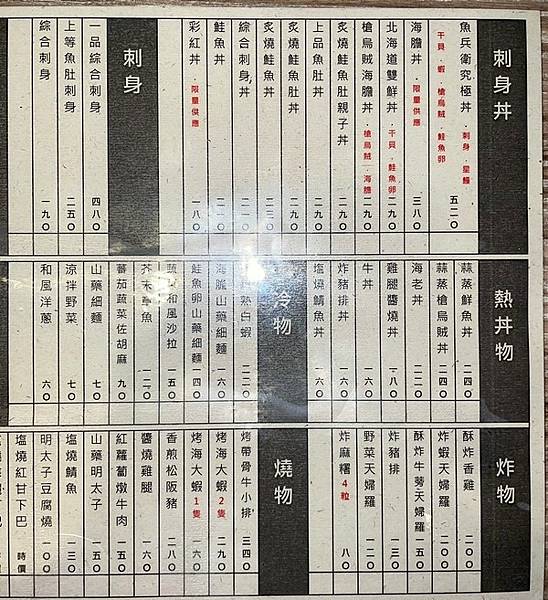 刺身丼
魚兵衛究極丼 ‧刺身‧星鰻 干貝‧蝦‧槍烏賊‧鮭魚卵 五二〇
海膽丼 ‧限量供應 三八〇
北海道雙鮮丼 ‧干貝‧鮭魚卵 二九〇
槍烏賊海膽丼 ‧槍烏賊‧海膽 二九〇
炙燒鮭魚肚親子丼 二九〇
上品魚肚丼 二九〇
炙燒鮭魚肚丼 二九〇
炙燒鮭魚丼 二三〇
綜合刺身丼 二一〇
鮭魚丼 二一〇
彩紅丼 ‧限量供應 一八〇
刺身
一品綜合刺身 四八〇
上等魚肚刺身 二五〇
綜合刺身 一九〇
熱丼物
蒜蒸鮮魚丼 二四〇
蒜蒸槍烏賊丼 二四〇
海老丼 二二〇
雞腿醬燒丼 一八〇
牛丼 一六〇
炸豬排丼 一六〇
塩燒鯖魚丼 一六〇
冷物
熟白蝦 二二〇
海膽山藥細麵 一六〇
鮭魚卵山藥細麵 一四〇
蔬菜和風沙拉 一五〇
芥末章魚 一二〇
蕃茄蔬菜佐胡麻 九〇
山藥細麵 七〇
涼拌野菜 七〇
和風洋蔥 六〇
炸物
酥炸香雞 二〇〇
炸蝦天婦羅 二〇〇
酥炸牛蒡天婦羅 一五〇
炸豬排 一三〇
野菜天婦羅 一二〇
炸麻糬4粒 八〇
燒物
烤帶骨牛小排 三四〇
烤海大蝦2隻 二九〇
烤海大蝦1隻 一六〇
香煎松阪豬 二八〇
醬燒雞腿 一六〇
紅蘿蔔燉牛肉 一五〇
山藥明太子 一五〇
塩燒鯖魚 一三〇
明太子豆腐燒 一〇〇
塩燒紅甘下巴 時價